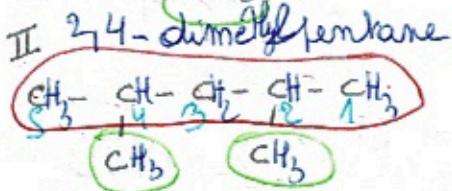 II 2,4-dimethylpentane
CH3- CH- CH2- CH- CH3
5 4 3 2 1
CH3 CH3